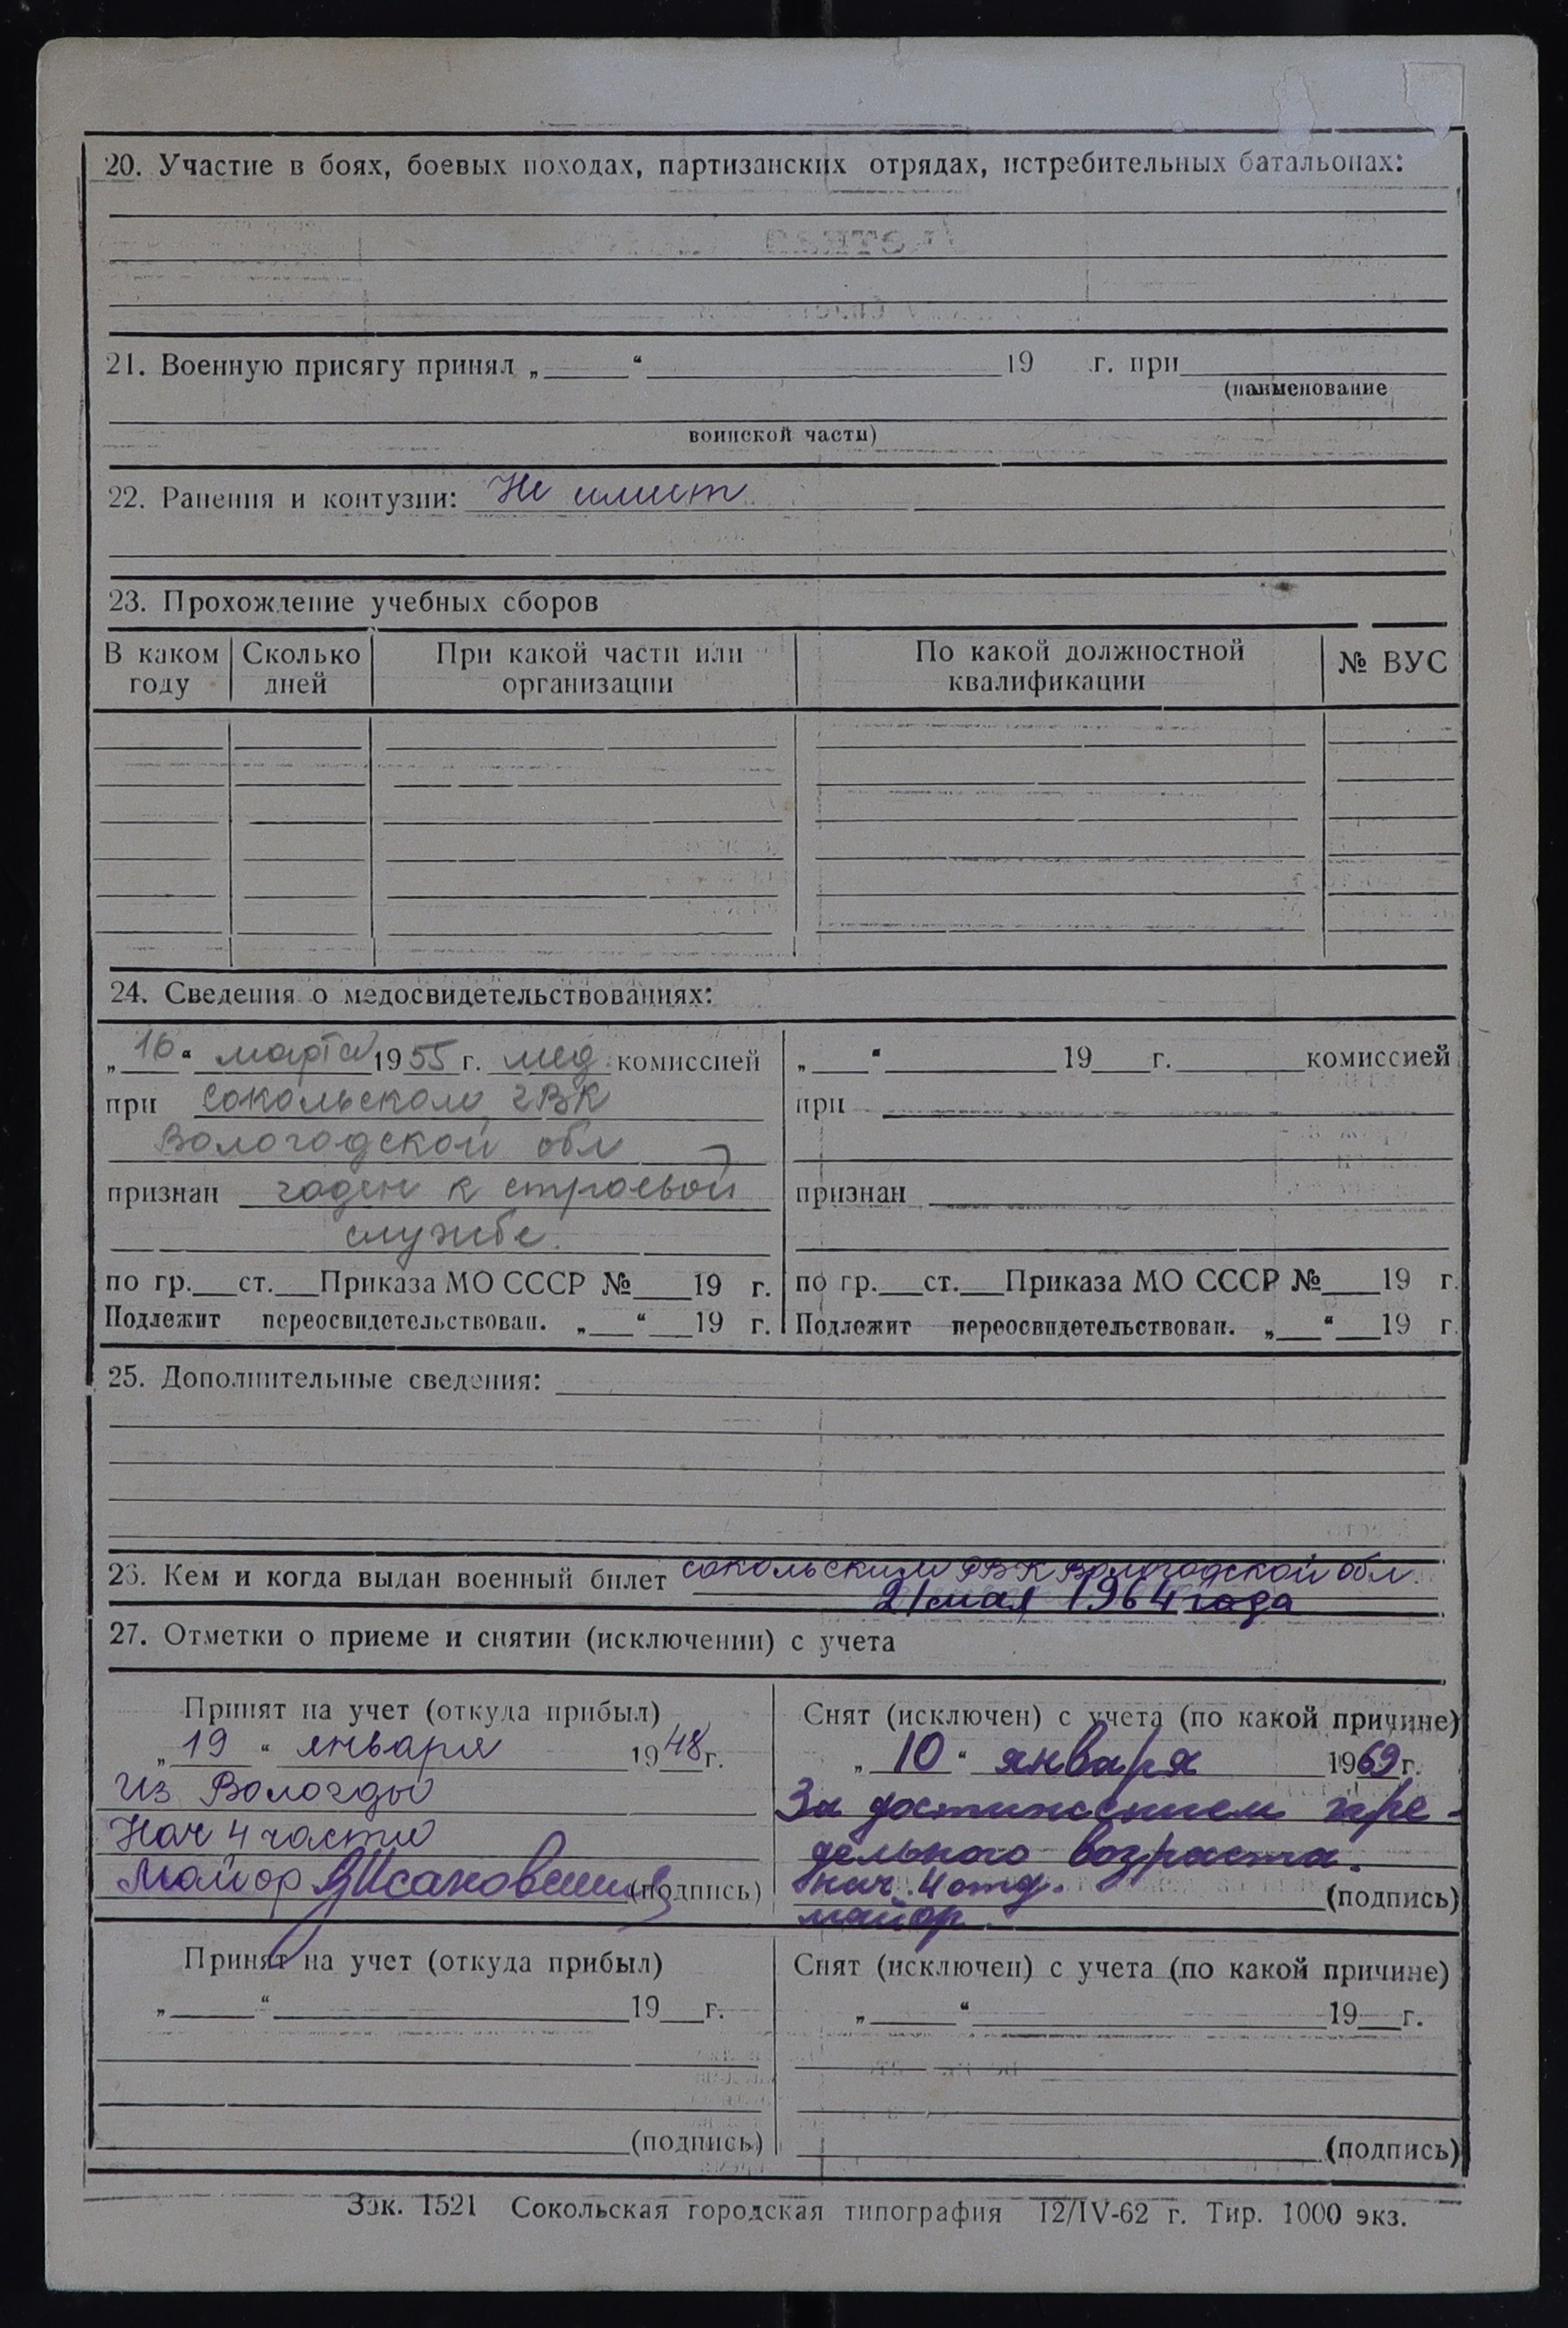 20. Участие в боях, боевых походах, партизанских отрядах, истребительных батальонах:
21. Военную присягу принял „____“ ____ 19 г. при ____
(наименование
воинской части)
22. Ранения и контузии: Не имеет
23. Прохождение учебных сборов
В каком году | Сколько дней | При какой части или организации | По какой должностной квалификации | № ВУС
24. Сведения о медосвидетельствованиях:
„16“ марта 1955 г. мед. комиссией
при Сокольском ГВК
Вологодской обл
признан годен к строевой
службе.
по гр.___ст.___Приказа МО СССР №___19 г.
Подлежит переосвидетельствован. „___“___19 г.
„___“ ____ 19___г. ____ комиссией
при
признан
по гр.___ст.___Приказа МО СССР №___19 г.
Подлежит переосвидетельствован. „___“___19 г.
25. Дополнительные сведения:
26. Кем и когда выдан военный билет Сокольским РВК Вологодской обл.
21 мая 1964 года
27. Отметки о приеме и снятии (исключении) с учета
Принят на учет (откуда прибыл)
„19“ января 1948 г.
Из Вологды
Нач 4 части
Майор (подпись)
Снят (исключен) с учета (по какой причине)
„10“ января 1969 г.
За достижением пре-
дельного возраста.
нач. 4 отд.
майор. (подпись)
Принят на учет (откуда прибыл)
„____“ ____ 19___г.
(подпись)
Снят (исключен) с учета (по какой причине)
„____“ ____ 19___г.
(подпись)
Зак. 1521 Сокольская городская типография 12/IV-62 г. Тир. 1000 экз.